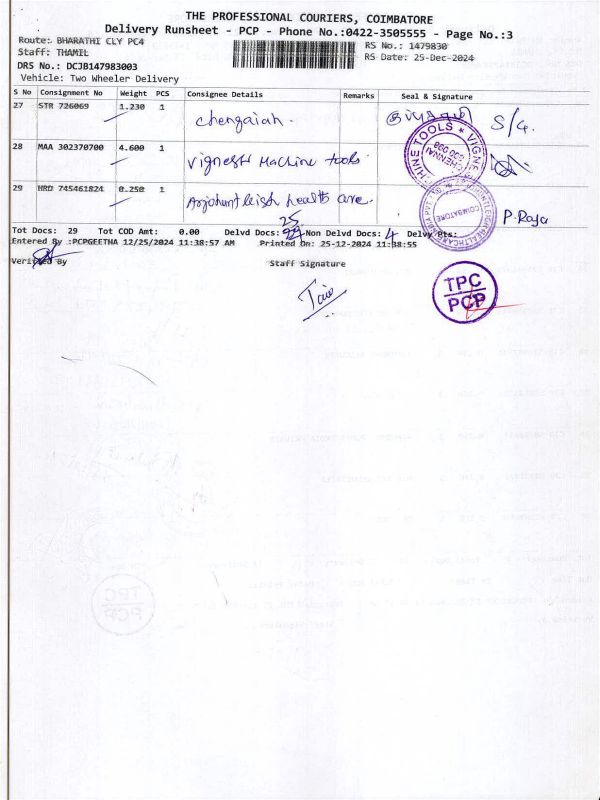 THE PROFESSIONAL COURIERS, COIMBATORE
Delivery Runsheet - PCP - Phone No.:0422-3505555 - Page No.:3
Route: BHARATHI CLY PC4 RS No.: 1479830
Staff: THAMIL RS Date: 25-Dec-2024
DRS No.: DCJB147983003
Vehicle: Two Wheeler Delivery
S No Consignment No Weight PCS Consignee Details Remarks Seal & Signature
27 STR 726069 1.230 1 chengaiah. S/4.
28 MAA 302370700 4.600 1 Vignesh Machine tools
VIGNE
CHENNAI
29 HRD 745461824 0.250 1 health care.
COIMBATORE
P. Raja
25
Tot Docs: 29 Tot COD Amt: 0.00 Delvd Docs: Non Delvd Docs: 4 Delvy Pts:
Entered By :PCPGEETHA 12/25/2024 11:38:57 AM Printed On: 25-12-2024 11:38:55
Verified By Staff Signature
TPC
PCP